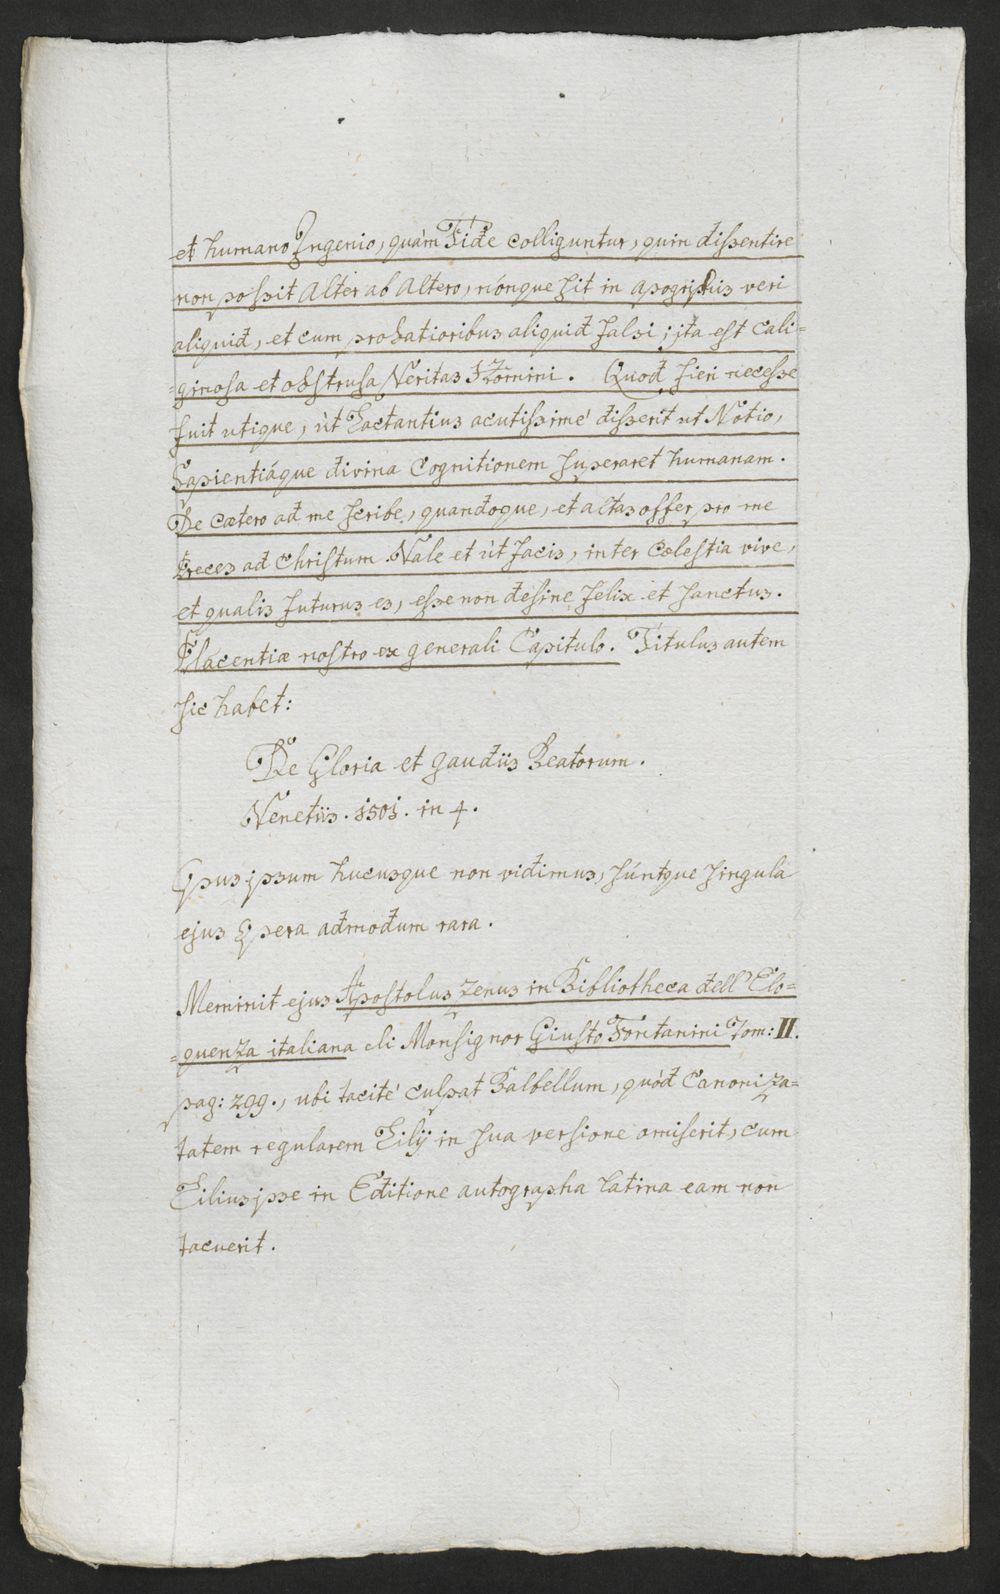 et humano Ingenio, quàm Fide colliguntur, quin dissentire
non possit Alter ab Altero, nónque sit in apogriphis veri
aliquid, et cum probatioribus aliquid falsi; ita est Cali=
=ginosa et obstrusa Veritas Homini. Quod fieri necesse
fuit utique, ùt Lactantius acutissimé disserit ut Notio,
Sapientiáque divina Cognitionem superaret humanam.
De cætero ad me scribe, quandoque, et altas offer pro me
Preces ad Christum. Vale et ùt facis, inter Cœlestia vive,
et qualis futurus es, esse non desine felix et sanctus.
Placentiæ nostro ex generali Capitulo. Titulus autem
sic habet:
De Gloria et gaudiis Beatorum.
Venetiis. 1501. in 4.
Opus ipsum hucusque non vidimus, súntque singula
ejus Opera admodum rara.
Meminit ejus Apostolus Zenus in Bibliotheca dell' Elo=
=quenza italiana di Monsignor Giusto Fontanini Tom: II.
pag: 299., ubi tacité culpat Balbellum, quód Canoniza=
tatem regularem Lilij in sua versione omiserit, cum
Lilius ipse in Editione autographa latina eam non
tacuerit.